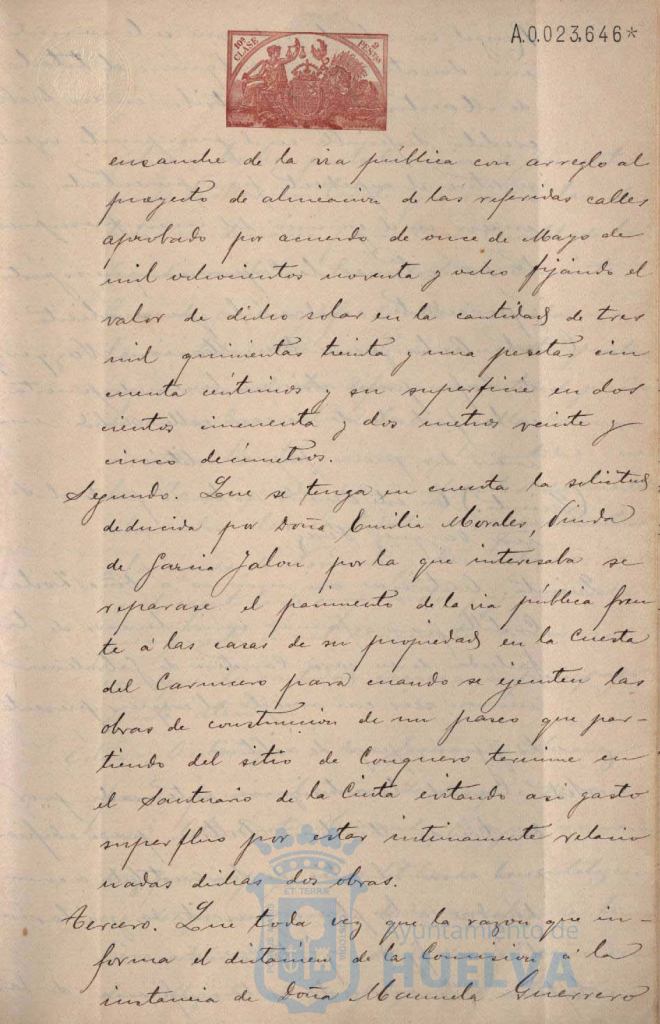 A.0.023,646*
10ª CLASE
2 PESETAS
ensanche de la via pública con arreglo al
proyecto de alineacion de las referidas calles
aprobado por acuerdo de once de Mayo de
mil ochocientos noventa y ocho fijando el
valor de dicho solar en la cantidad de tres
mil quinientas treinta y una pesetas cin
cuenta céntimos y su superficie en dos
cientos cincuenta y dos metros veinte y
cinco decímetros.
Segundo. Que se tenga en cuenta la solicitud
deducida por Doña Emilia Morales, Viuda
de Garcia Jalon por la que interesaba se
reparase el pavimento de la via pública fren
te á las casas de su propiedad en la Cuesta
del Carnicero para cuando se ejecuten las
obras de construccion de un paseo que par-
tiendo del sitio de Conquero termine en
el Santuario de la Cinta evitando asi gasto
superfluo por estar intimamente relacio
nadas dichas dos obras.
Tercero. Que toda vez que la razon que in-
forma el dictámen de la Comision á la
instancia de Doña Manuela Guerrero
ET TERRÆ
Ayuntamiento de
HUELVA